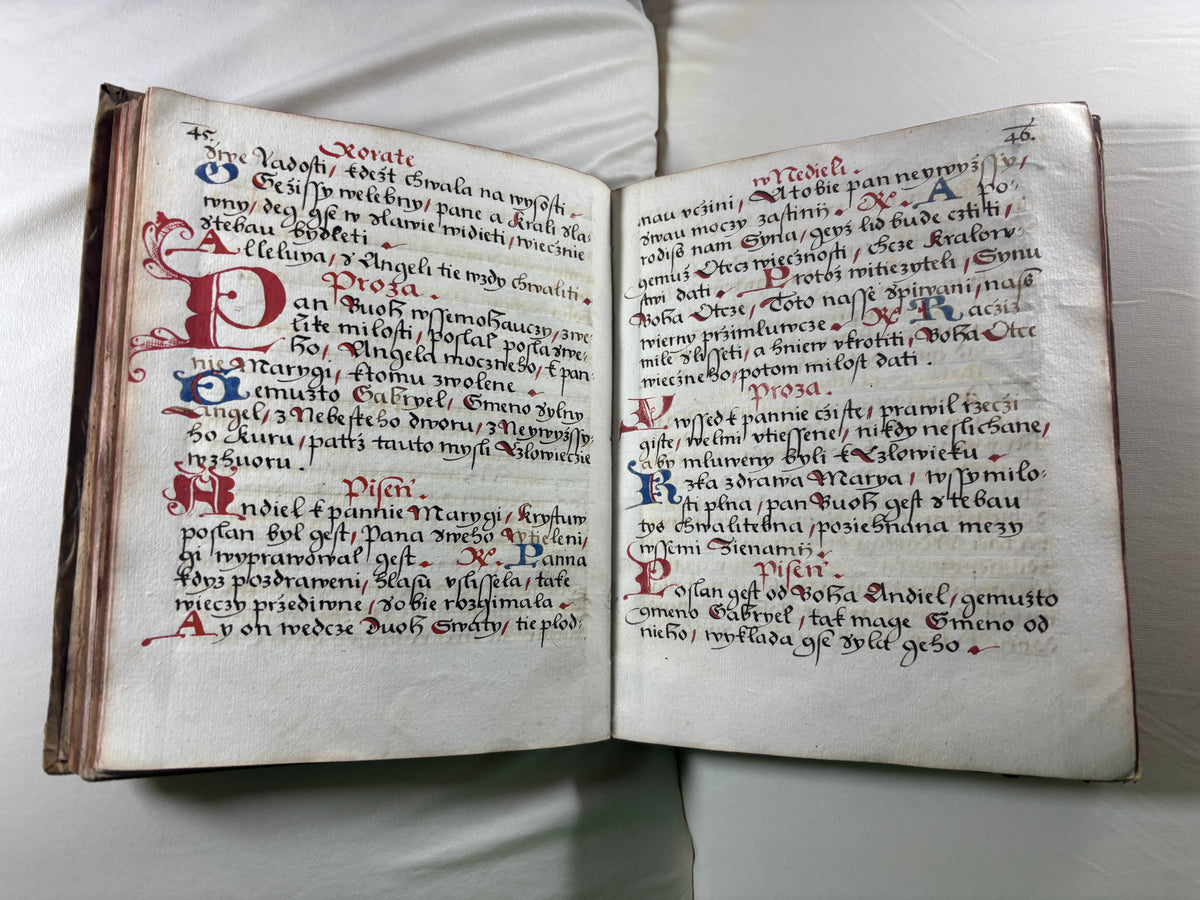 45.
Rorate
dwe Radosti / kdežt chwala na wysosti.
O Gežissy welebny / pane a Krali sla-
wny / deg gse w slawie widieti / wiecznie
s tebau bydleti.
Alleluya / s Angeli tie wzdy chwaliti.
Proza.
Pan Buoh wssemohauczy / zwe-
like milosti / poslal posla swe-
ho / Angela moczneho / k pan-
nie Marygi / ktomu zwolene.
Gemužto Gabryel / Gmeno sylny
Angel / z Nebeskeho dworu / z Neywyžssy-
ho Kuru / pattž tauto mysli Czlowieczie
wzhuoru.
Pisen.
Andiel k pannie Marygi / Krystuw
poslan byl gest / Pana sweho wtieleni-
gi wyprawowal gest. R. Panna
když pozdraweni / hlasu vslissela / take
wieczy przediwne / sobie rozgimala.
Ay on wedcze Duoh Swaty / tie plod-
46.
w Nedieli.
nau vcžini / A tobie pan neywyžssy /
swau moczy zastinij. R. A po-
rodiss nam Syna / geyž lid bude cztiti /
gemuž Otecz wiecznosti / chcze Kralow-
stwi dati. Protož witiezyteli / Synu
Boha Otcze / Toto nasse spiwani / nass
wierny przimluwcze. R. Racžiž
mile slysseti / a hniew vkrotiti / Boha Otce
wiecžneho / potom milost dati.
Proza.
Wssed k pannie cžiste / prawil rzecži
giste / welmi vtiessene / nikdy neslichane /
aby mluweny byli k Czlowieku.
Rzka zdrawa Marya / wssy milo-
sti plna / pan Buoh gest s tebau
tys chwalitebna / poziehnana mezy
wssemi Zienamij.
Pisen.
Poslan gest od Boha Andiel / gemužto
gmeno Gabryel / tak mage Gmeno od
nieho / wyklada gse syla geho.